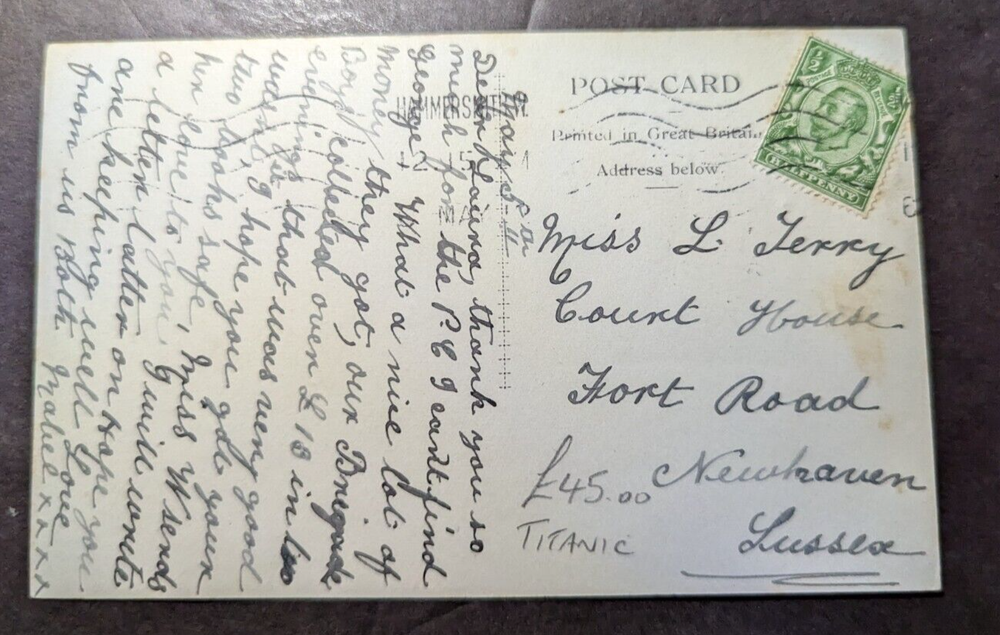 POST CARD
Printed in Great Britain
Address below.
HAMMERSMITH. W.
12 15
MA
HALFPENNY
Miss L Terry
Court House
Fort Road
Newhaven
Sussex
£45.00
TITANIC
May 5
Dear Laura, thank you so
much for the P.C I cant find
george. What a nice lot of
money they got, our Brigade
Boys collected over £ 18 in two
evenings that was very good
wasn't it I hope you got your
two books safe, Miss W sends
her love to you, I will write
a letter latter on Hope you
are keeping well Love
from us Both Mabel x x x x